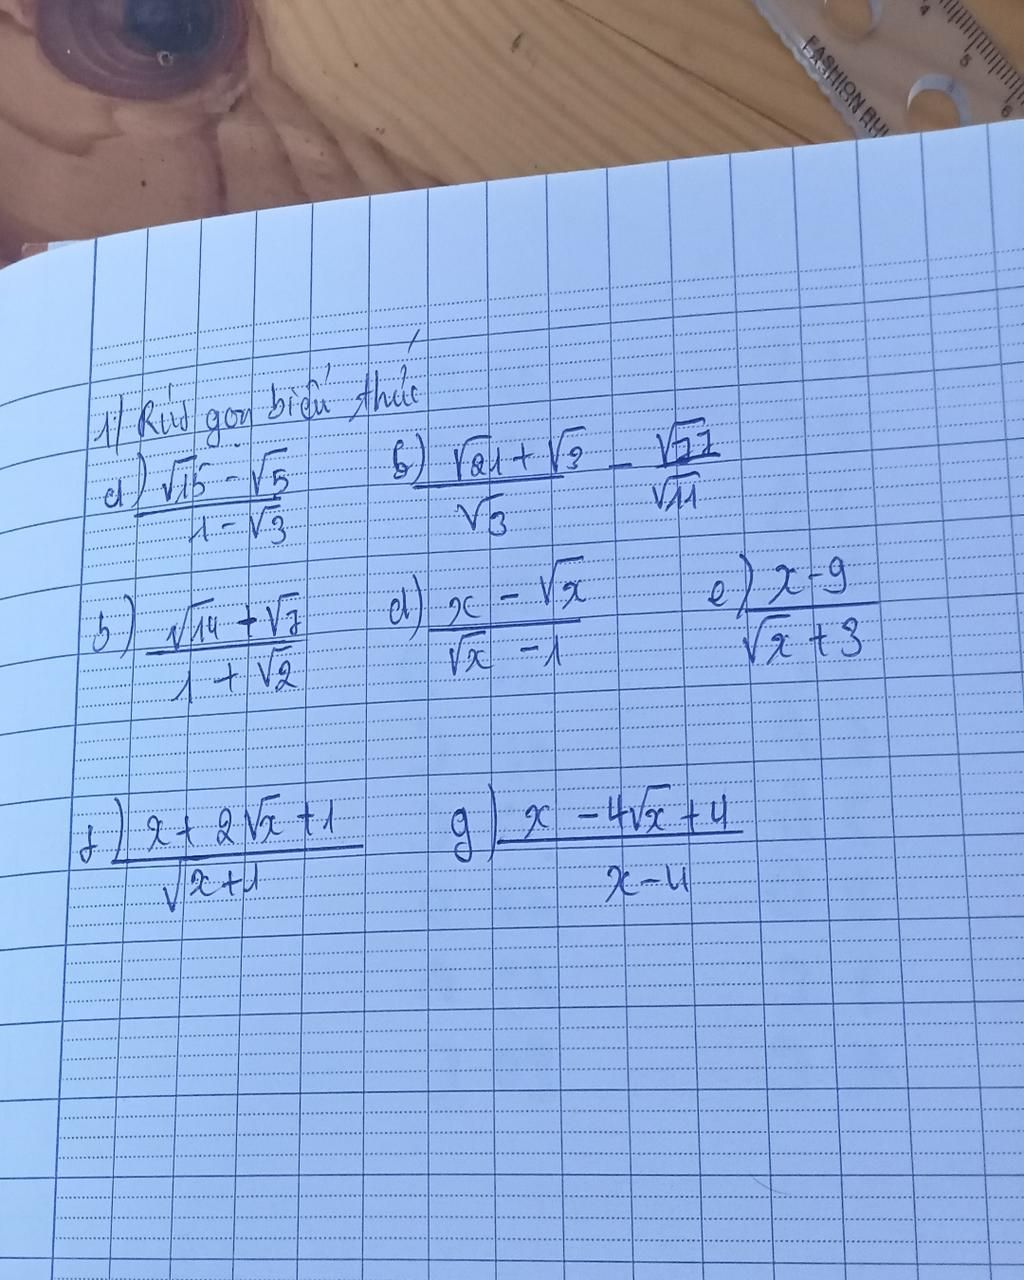 4
5
6
FASHION RUL
1) Rút gọn biểu thức
a) (√15 - √5)/(1 - √3) b) (√21 + √3)/√3 - √77/√11
b) (√14 + √7)/(1 + √2) d) (x - √x)/(√x - 1) e) (x - 9)/(√x + 3)
f) (x + 2√x + 1)/√(x+1) g) (x - 4√x + 4)/(x - 4)